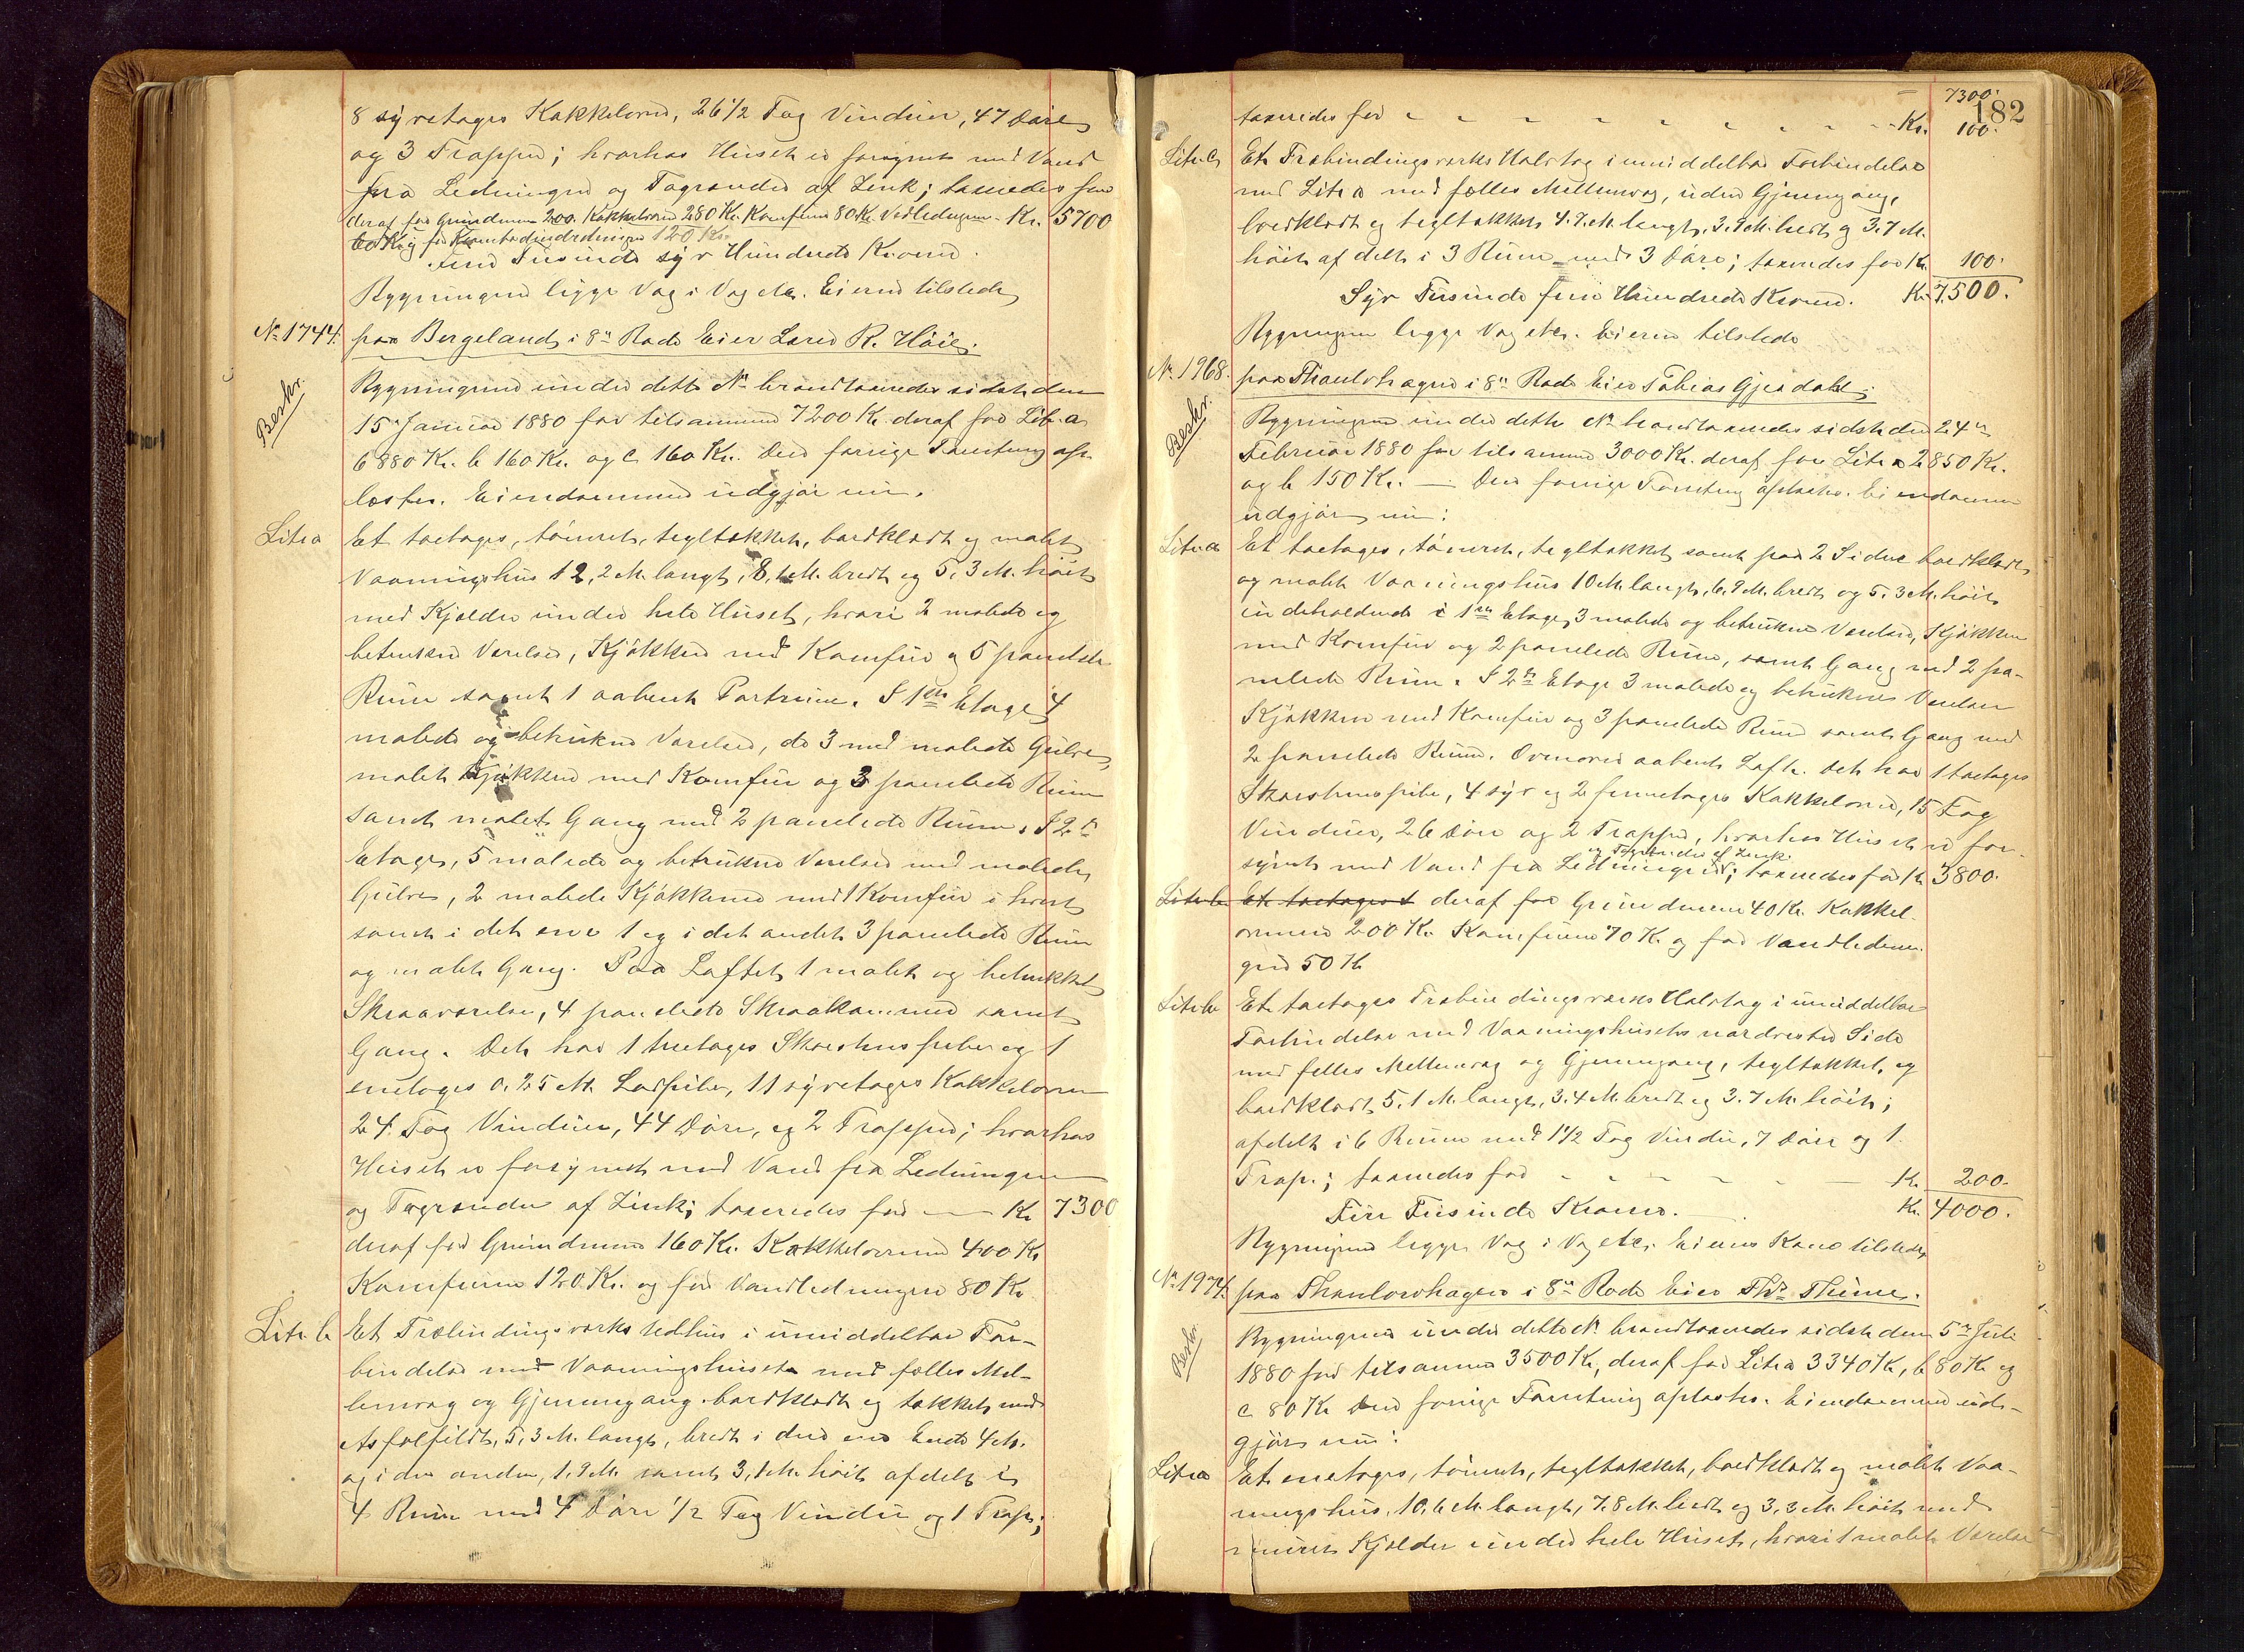 8 syvetages Kakkelovne, 26 1/2 Fag Vinduer, 47 Döre
og 3 Trapper; hvorhos Huset er forsynet med Vand
fra Ledningen og Tagrender af Zink; taxeredes for
deraf for Grundmuren 200. Kakkelovne 280 Kr. Komfurer 80 Kr. Vedledningen - Kr. 5700
60 Kr og for 120 Kr.
Fem Tusinde syv Hundrede Kroner.
Bygningen ligger Væg i Væg etc. Eieren tilstede
No 1744. paa Bergeland i 8de Rode Eier Lars R. Höie;
Beskr.
Bygningerne under dette No brandtaxeredes sidst den
15de Januar 1880 for tilsammen 7200 Kr. deraf for Litr. a
6880 Kr. b 160 Kr. og c 160 Kr. Den forrige Taxering op-
læstes. Eiendommen udgjør nu.
Litr a Et toetages, tömret, tegltækket, bordklædt og malet
Vaaningshus 12,2 M. langt, 8,1 M. bredt og 5,3 M. höit
med Kjelder under hele Huset, hvori 2 malede og
betrukne Værelser, Kjökken med Komfur og 5 panelede
Rum samt 1 aabent Portrum. I 1ste Etage 4
malede og betrukne Værelser, de 3 med malede Gulve,
malet Kjökken med Komfur og 3 panelede Rum
samt malet Gang med 2 panelede Rum. I 2den
Etage, 5 malede og betrukne Værelser med malede
Gulve, 2 malede Kjökkener med 1 Komfur i hvert
samt i det ene 1 og i det andet 3 panelede Rum
og malet Gang. Paa Loftet 1 malet og betrukket
Skraaværelse, 4 panelede Skraakammer samt
Gang. Det har 1 treetages Skorstenspibe og 1
enetages 0.25 M. Lodpibe, 11 syvetages Kakkelovne
24. Fag Vinduer, 44 Döre, og 2 Trapper; hvorhos
Huset er forsynet med Vand fra Ledningen
og Tagrender af Zink; taxeredes for — Kr 7300
deraf for Grundmuren 160 Kr. Kakkelovnene 400 Kr
Komfurene 120 Kr. og for Vandledningen 80 Kr.
Litr. b Et Træbindingsverks Vedhus i umiddelbar For-
bindelse med Vaaningshuset med fælles Mel-
lemvæg og Gjennemgang bordklædt og tækket med
Asfaltfildt, 5,3 M. langt, bredt i den ene Ende 4 M.
og i den anden, 1,9 M. samt 3,1 M. höit afdelt i
4 Rum med 4 Döre 1/2 Fag Vindu og 1 Trap;
182
7300.
taxeredes for - - - - - - - - - Kr. 100.
Litr. c Et Træbindingsverks Halvtag i umiddelbar Forbindelse
med Litr a med fælles Mellemvæg, uden Gjennemgang,
bordklædt og tegltækket 4.7 M. langt, 3.9 M. bredt og 3.7 M.
höit afdelt i 3 Rum med 3 Döre; taxeredes for Kr. 100.
Syv Tusinde fem Hundrede Kroner. Kr. 7,500.
Bygningen ligger Væg etc. Eieren tilstede
No 1968. paa Thaulowhagen i 8de Rode Eier Tobias Gjesdahl;
Beskr.
Bygningerne under dette No brandtaxeredes sidst den 24de
Februar 1880 for tilsammen 3000 Kr. deraf for Litr a 2850 Kr.
og b 150 Kr. — Den forrige Taxering oplæstes. Eiendommen
udgjör nu:
Litr. a Et toetages, tömret, tegltækket samt paa 2 Sider bordklædt
og malet Vaaningshus 10 M. langt, 6.9 M. bredt og 5.3 M. höit
indeholdende i 1ste Etage, 3 malede og betrukne Værelser, Kjökken
med Komfur og 2 panelede Rum, samt Gang med 2 pa-
nelede Rum. I 2den Etage 3 malede og betrukne Værelser
Kjökken med Komfur og 3 panelede Rum samt Gang med
2 panelede Rum. Ovenover aabent Loft. Det har 1 toetages
Skorstenspibe, 4 syv og 2 femetages Kakkelovne, 15 Fag
Vinduer, 26 Döre og 2 Trapper, hvorhos Huset er for-
og Tagrender af Zink
synet med Vand fra Ledningen; taxeredes for Kr 3800.
Litr. b Et toetages deraf for Grundmuren 40 Kr. Kakkel-
ovnene 200 Kr. Komfurene 70 Kr og for Vandlednin-
gen 50 Kr
Litr. b Et toetages Træbindingsværks Halvtag i umiddelbar
Forbindelse med Vaaningshusets nordvestre Side
med fælles Mellemvæg og Gjennemgang, tegltækket, og
bordklædt 5.1 M. langt, 3.4 M. bredt og 3.7 M. höit;
afdelt i 6 Rum med 1 1/2 Fag Vindu, 7 Döre og 1.
Trap.; taxeredes for - - - - - Kr. 200.
Fire Tusinde Kroner. Kr. 4000.
Bygningen ligger Væg i Væg etc. Eierens Kone tilstede
No 1974. paa Thaulowhagen i 8de Rode Eier Ths Thime.
Beskr.
Bygningerne under dette No brandtaxeredes sidst den 5te Juli
1880 for tilsammen 3500 Kr, deraf for Litr a 3340 Kr, b 80 Kr og
c 80 Kr Den forrige Taxering oplæstes. Eiendommen ud-
gjör nu:
Litr a Et enetages, tömret, tegltækket, bordklædt og malet Vaa-
ningshus, 10,6 M. langt, 7.8 M. bredt og 3,3 M. höit med
muret Kjelder under hele Huset, hvori 1 malet Værelse